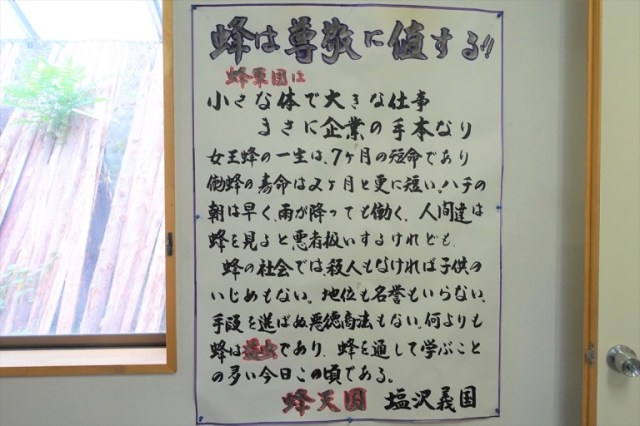 蜂は尊敬に値する!!
蜂軍団は
小さな体で大きな仕事
まさに企業の手本なり
女王蜂の一生は、7ヶ月の短命であり
働蜂の寿命は2ヶ月と更に短い、ハチの
朝は早く、雨が降っても働く、人間達は
蜂を見ると悪者扱いするけれども、
蜂の社会では殺人もなければ子供の
いじめもない。地位も名誉もいらない、
手段を選ばぬ悪徳商法もない、何よりも
蜂は益虫であり、蜂を通して学ぶこと
の多い今日この頃である。
蜂天国 塩沢義国